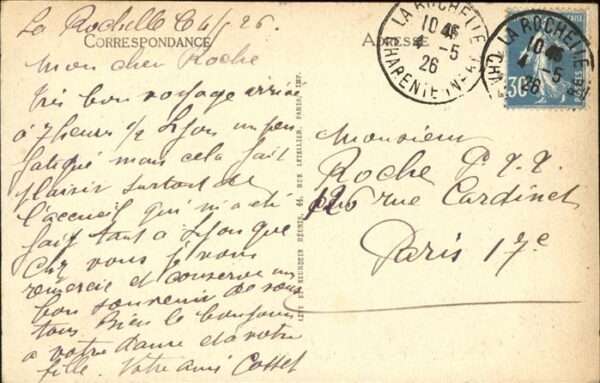 La Rochelle Le 4/5 26.
CORRESPONDANCE
Mon cher Roche
Très bon voyage arrivé
à 7 heures 1/2 Lyon un peu
fatigué mais cela fait
plaisir surtout de
l'accueil qui m'a été
fait tant à Lyon que
chez vous je vous
remercie et conserve un
bon souvenir de vous
tous Bien le bonjour
à votre dame et à votre
fille. Votre ami Cosset
ADRESSE
Monsieur
Roche P.T.T.
126 rue Cardinet
Paris 17e
LA ROCHELLE
10 45
4 - 5
26
CHARENTE INFRE
LA ROCHELLE
10 45
4 - 5
26
30
44, RUE LETELLIER, PARIS, IMP.